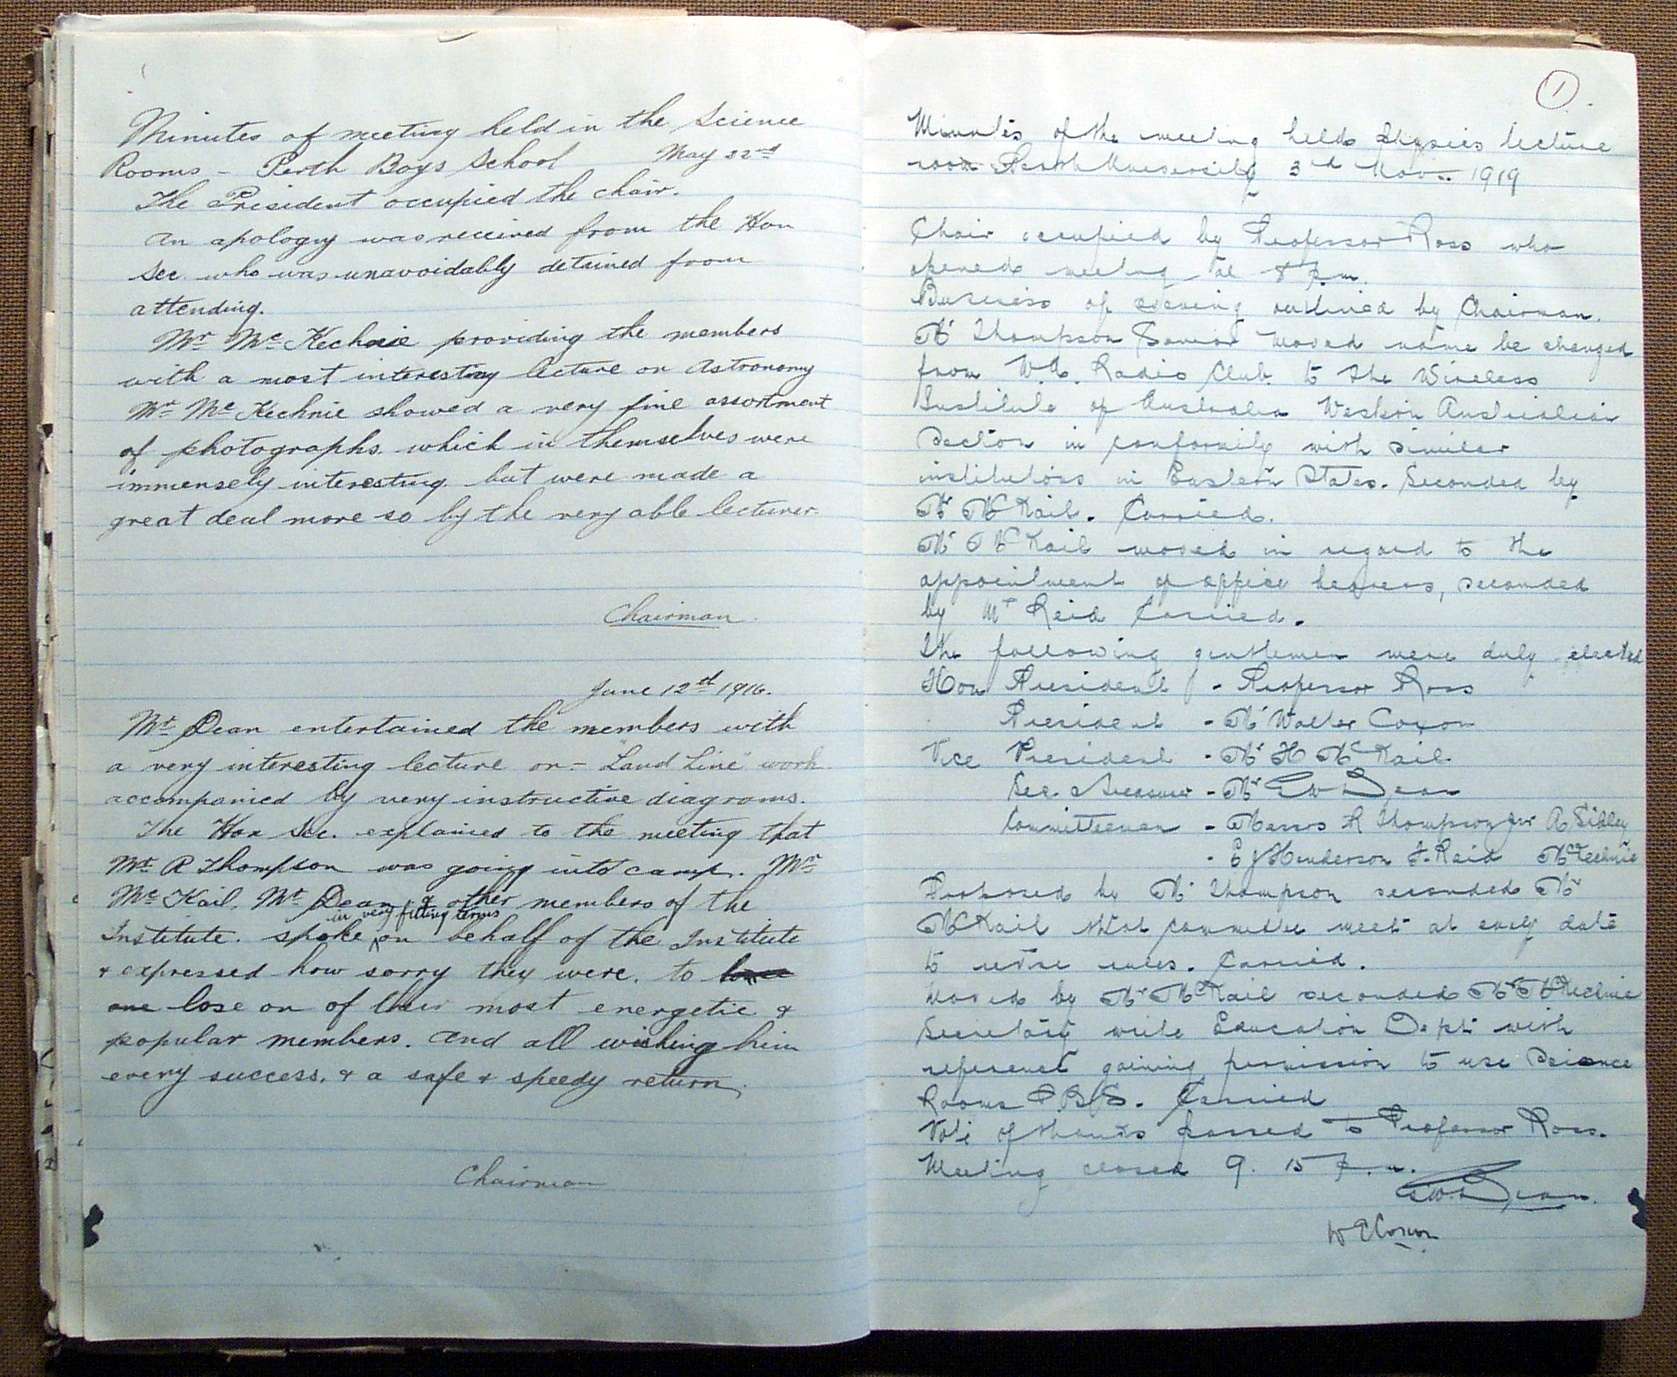 Minutes of meeting held in the Science
Rooms - Perth Boys School May 22nd
The President occupied the chair.
An apology was received from the Hon
Sec who was unavoidably detained from
attending.
Mr McKechnie providing the members
with a most interesting lecture on Astronomy
Mr McKechnie showed a very fine assortment
of photographs. which in themselves were
immensely interesting but were made a
great deal more so by the very able lecturer.
Chairman.
June 12th 1916.
Mr Dean entertained the members with
a very interesting lecture on - "Land Line" work
accompanied by very instructive diagrams.
The Hon Sec. explained to the meeting that
Mr R Thompson was going into camp. Mr
McKail, Mr Dean & other members of the
in very fitting terms
Institute. spoke on behalf of the Institute
& expressed how sorry they were. to
one lose on of their most energetic &
popular members. and all wishing him
every success. & a safe & speedy return.
Chairman
1
Minutes of the meeting held Physics lecture
room Perth University 3rd Nov. 1919
Chair occupied by Professor Ross who
opened meeting at 8 p.m
Business of evening outlined by Chairman.
Mr Thompson Senior moved name be changed
from W.A. Radio Club to the Wireless
Institute of Australia Western Australian
Section in conformity with similar
institutions in Eastern States. Seconded by
Mr McKail. Carried.
Mr McKail moved in regard to the
appointment of office bearers, seconded
by Mr Reid Carried.
The following gentlemen were duly elected
Hon President - Professor Ross
President - Mr Walter Coxon
Vice President - Mr H McKail
Sec. & Treasurer - Mr G W Dean
Committeemen - Messrs R Thompson jnr A Sibley
- E J Henderson J. Reid McKechnie
Proposed by Mr Thompson seconded Mr
McKail that committee meet at early date
to revise rules. Carried.
Moved by Mr McKail seconded Mr McKechnie
Secretary write Education Dept with
reference gaining permission to use Science
Rooms P.B.S. Carried
Vote of thanks passed to Professor Ross.
Meeting closed 9. 15 p.m.
G.W. Dean.
W E Coxon